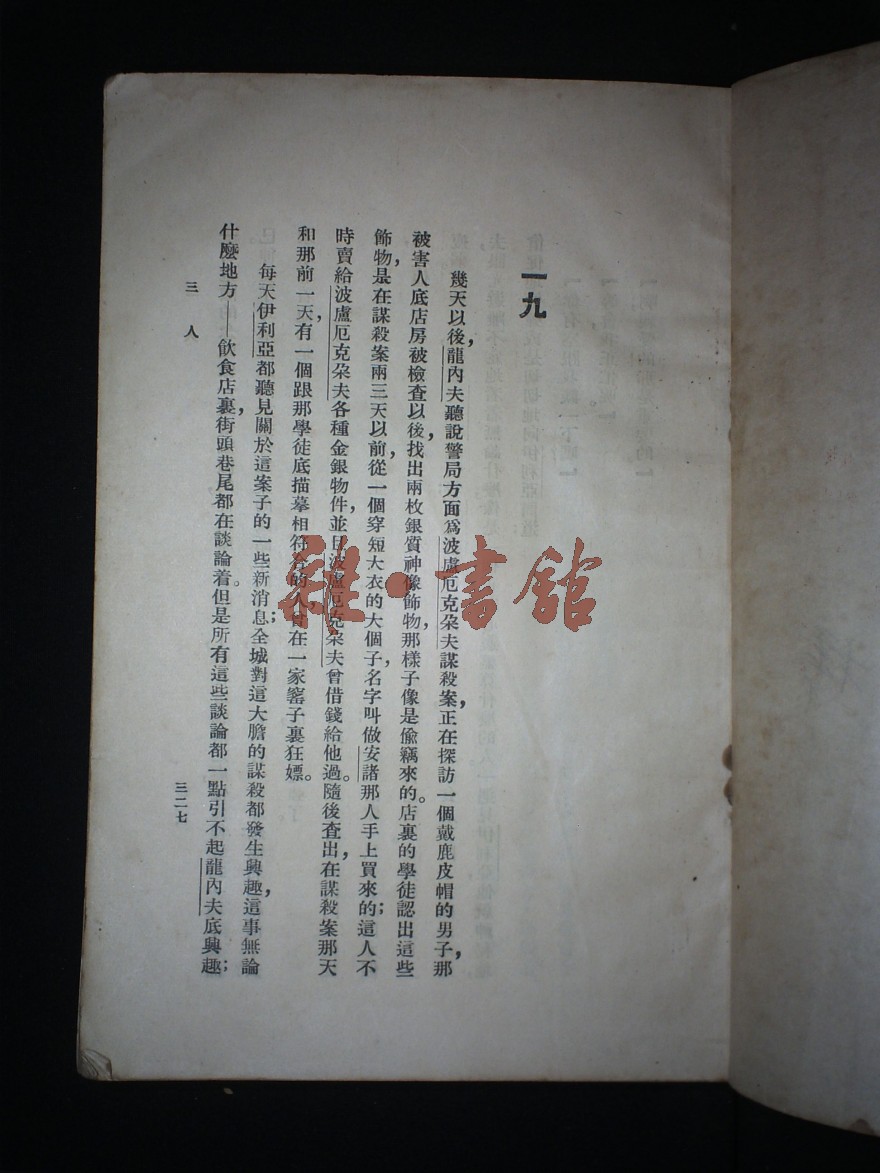 一九
幾天以後，龍內夫聽說警局方面爲波盧厄克朶夫謀殺案，正在探訪一個戴鹿皮帽的男子，那
被害人底店房被檢查以後，找出兩枚銀質神像飾物，那樣子像是偸竊來的。店裏的學徒認出這些
飾物，是在謀殺案兩三天以前，從一個穿短大衣的大個子，名字叫做安諸那人手上買來的；這人不
時賣給波盧厄克朶夫各種金銀物件並且波盧厄克朶夫曾借錢給他過。隨後查出在謀殺案那天，
和那前一天，有一個跟那學徒底描摹相符合的人，曾在一家窰子裏狂嫖。
每天伊利亞都聽見關於這案子的一些新消息；全城對這大膽的謀殺都發生興趣，這事無論
什麼地方——飲食店裏，街頭巷尾都在談論着。但是所有這些談論都一點引不起龍內夫底興趣；
三人
三二七
雜·書館